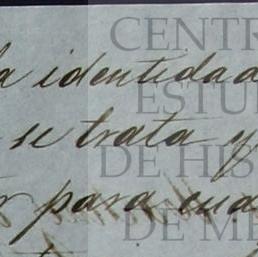 la identidad
se trata y
para cua
CENTR
ESTU
DE HIS
DE ME